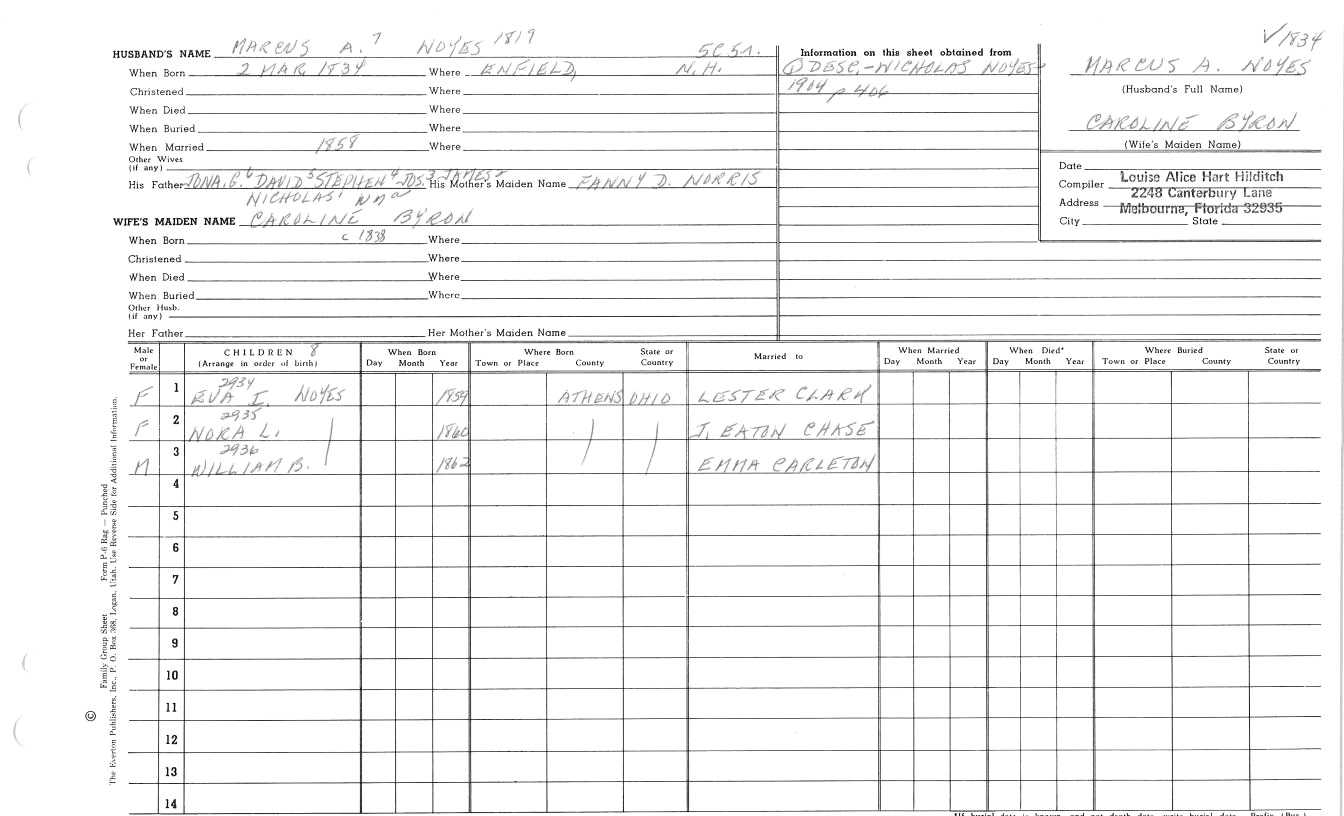 ✓1834
HUSBAND'S NAME MARCUS A. 7 NOYES 1819 5C51.
When Born 2 MAR 1834 Where ENFIELD, N.H.
Christened Where
When Died Where
When Buried Where
When Married 1858 Where
Other Wives
(if any)
His Father JONA. G. 6 DAVID 5 STEPHEN 4 JOS. 3 JAMES 2 His Mother's Maiden Name FANNY D. NORRIS
NICHOLAS 1
WIFE'S MAIDEN NAME CAROLINE BYRON
When Born c 1838 Where
Christened Where
When Died Where
When Buried Where
Other Husb.
(if any)
Her Father Her Mother's Maiden Name
Information on this sheet obtained from
① DESC.-NICHOLAS NOYES
1904 p 406
MARCUS A. NOYES
(Husband's Full Name)
CAROLINE BYRON
(Wife's Maiden Name)
Date
Compiler Louise Alice Hart Hilditch
Address 2248 Canterbury Lane
Melbourne, Florida 32935
City State
Male or Female CHILDREN 8 (Arrange in order of birth) When Born Day Month Year Where Born Town or Place County State or Country Married to When Married Day Month Year When Died* Day Month Year Where Buried Town or Place County State or Country
2934
F 1 EVA I. NOYES 1859 ATHENS OHIO LESTER CLARK
2935
F 2 NORA L. 1860 J. EATON CHASE
2936
M 3 WILLIAM B. 1862 EMMA CARLETON
4
5
6
7
8
9
10
11
12
13
14
© Family Group Sheet Form P-6 Rag — Punched
The Everton Publishers, Inc., P. O. Box 368, Logan, Utah. Use Reverse Side for Additional Information.